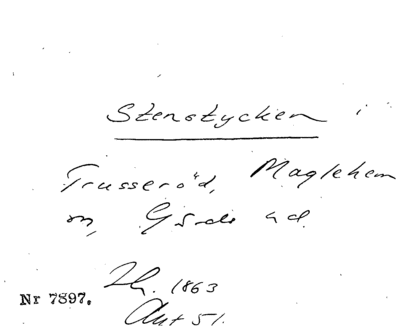 Stenstycken i
Trusseröd, Maglehem
sn, Gärds hd.
Lh. 1863
Nr 7897.
Ant 51.